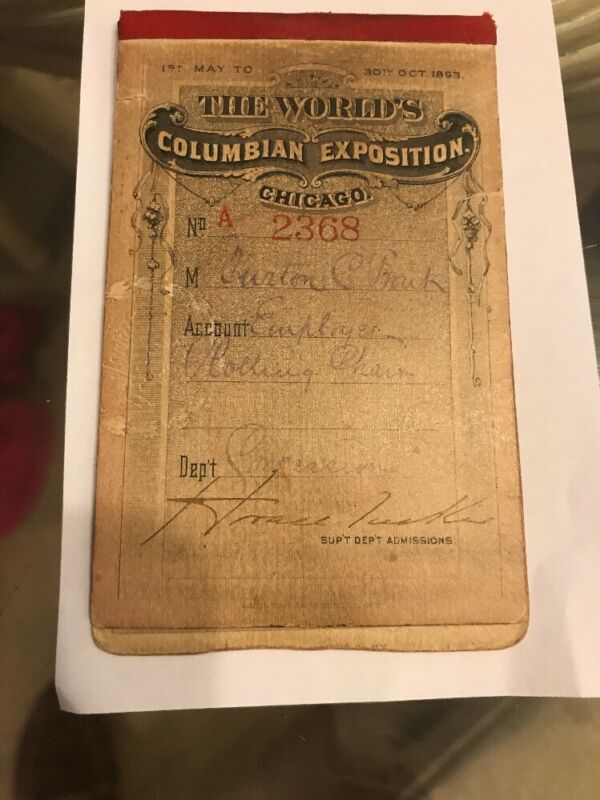 1ST MAY TO 30TH OCT. 1893.
THE WORLD'S
COLUMBIAN EXPOSITION,
CHICAGO.
No A 2368
M C
Account Employee
Chair
Dep't Concessions
Horace Tucker
SUP'T DEP'T ADMISSIONS